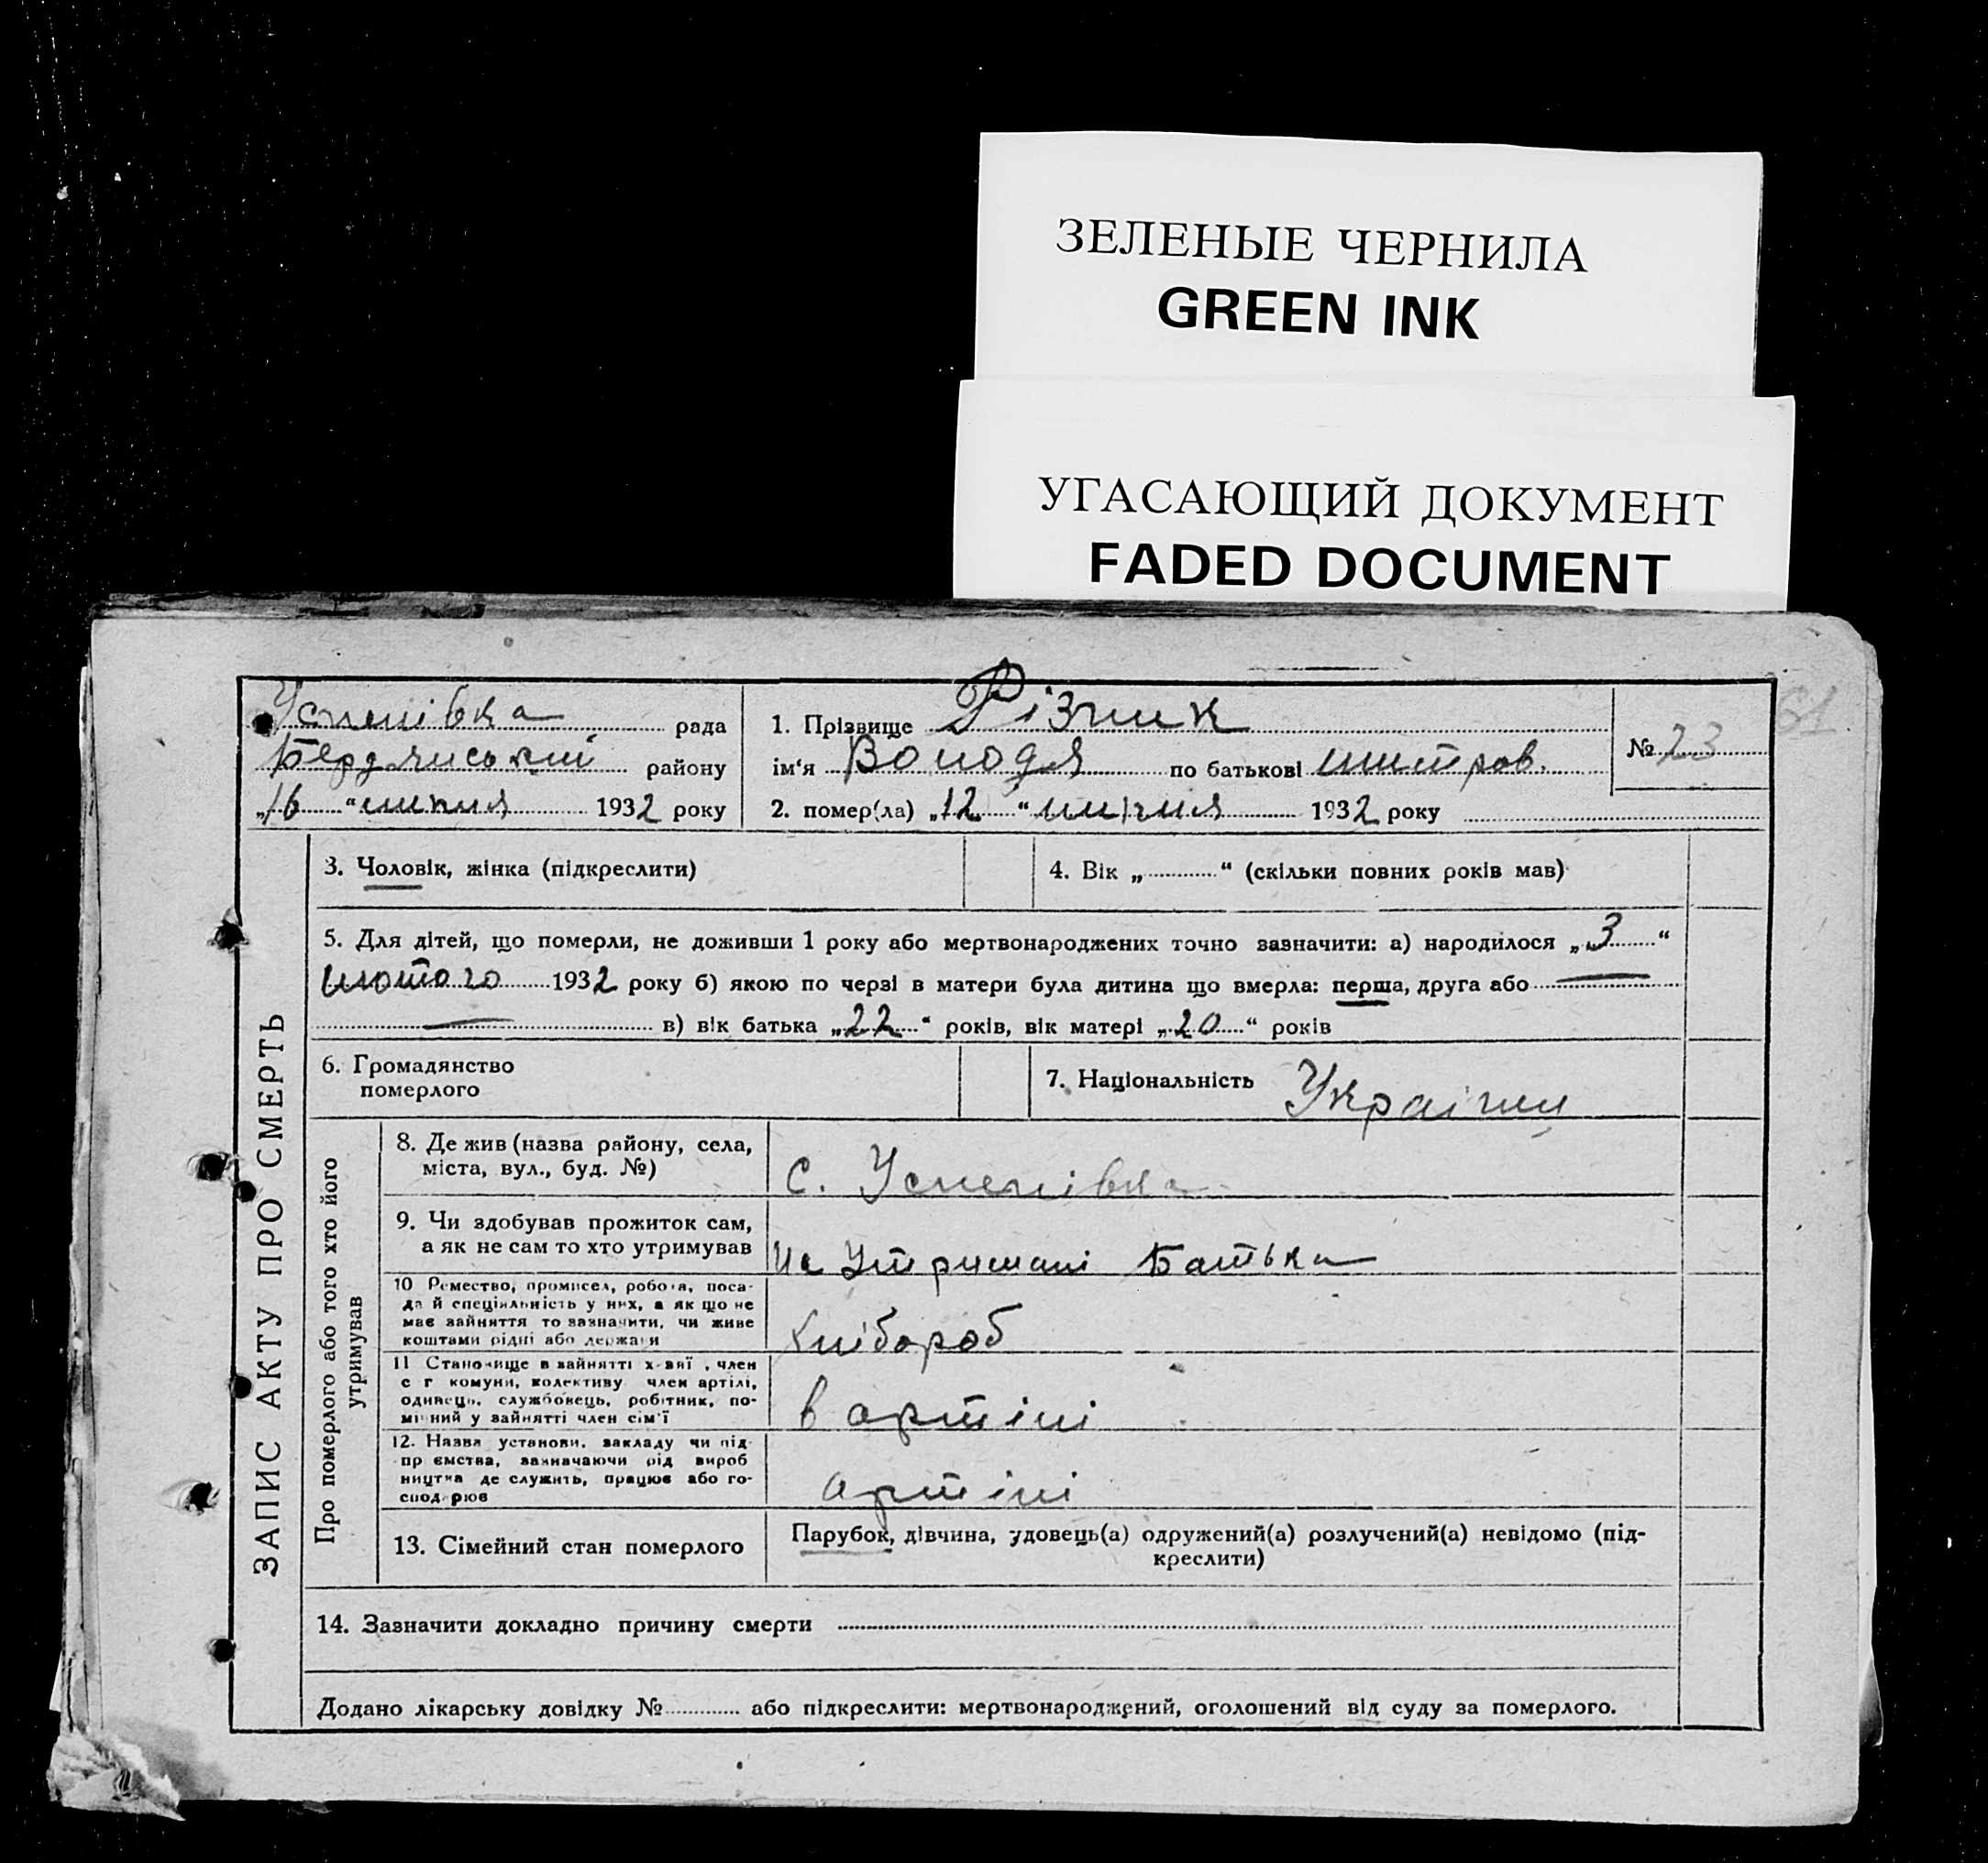 ЗЕЛЕНЫЕ ЧЕРНИЛА
GREEN INK
УГАСАЮЩИЙ ДОКУМЕНТ
FADED DOCUMENT
61
Успенівка рада
Бердянський району
„16“ липня 1932 року
1. Прізвище Різник
ім‘я Володя по батькові
2. помер(ла) „12“ липня 1932 року
№ 23
ЗАПИС АКТУ ПРО СМЕРТЬ
3. Чоловік, жінка (підкреслити)
4. Вік „ “ (скільки повних років мав)
5. Для дітей, що померли, не доживши 1 року або мертвонароджених точно зазначити: а) народилося „3“
лютого 1932 року б) якою по черзі в матери була дитина що вмерла: перша, друга або —
— в) вік батька „22“ років, вік матері „20“ років
6. Громадянство
померлого
7. Національність Україн
Про померлого або того хто його
утримував
8. Де жив (назва району, села,
міста, вул., буд. №)
с. Успенівка
9. Чи здобував прожиток сам,
а як не сам то хто утримував
На Утримані Батька
10 Ремество, промисел, робота, поса-
да й спеціяльність у них, а як що не
має зайняття то зазначити, чи живе
коштами рідні або держави
Хлібороб
11 Становище в зайнятті хазяї , член
с г комуни, колективу член артілі,
одинець, службовець, робітник, по-
мічний у зайнятті член сім‘ї
в артілі
12. Назва установи, закладу чи під-
пр ємства, зазначаючи рід вироб
ництва де служить, працює або го-
сподарює
артілі
13. Сімейний стан померлого
Парубок, дівчина, удовець(а) одружений(а) розлучений(а) невідомо (під-
креслити)
14. Зазначити докладно причину смерти
Додано лікарську довідку № або підкреслити: мертвонароджений, оголошений від суду за померлого.